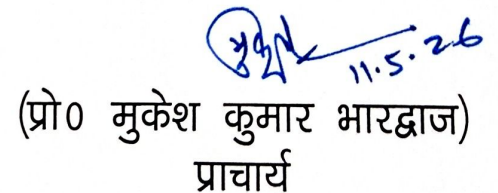 मुकेश
11.5.26
(प्रो० मुकेश कुमार भारद्वाज)
प्राचार्य